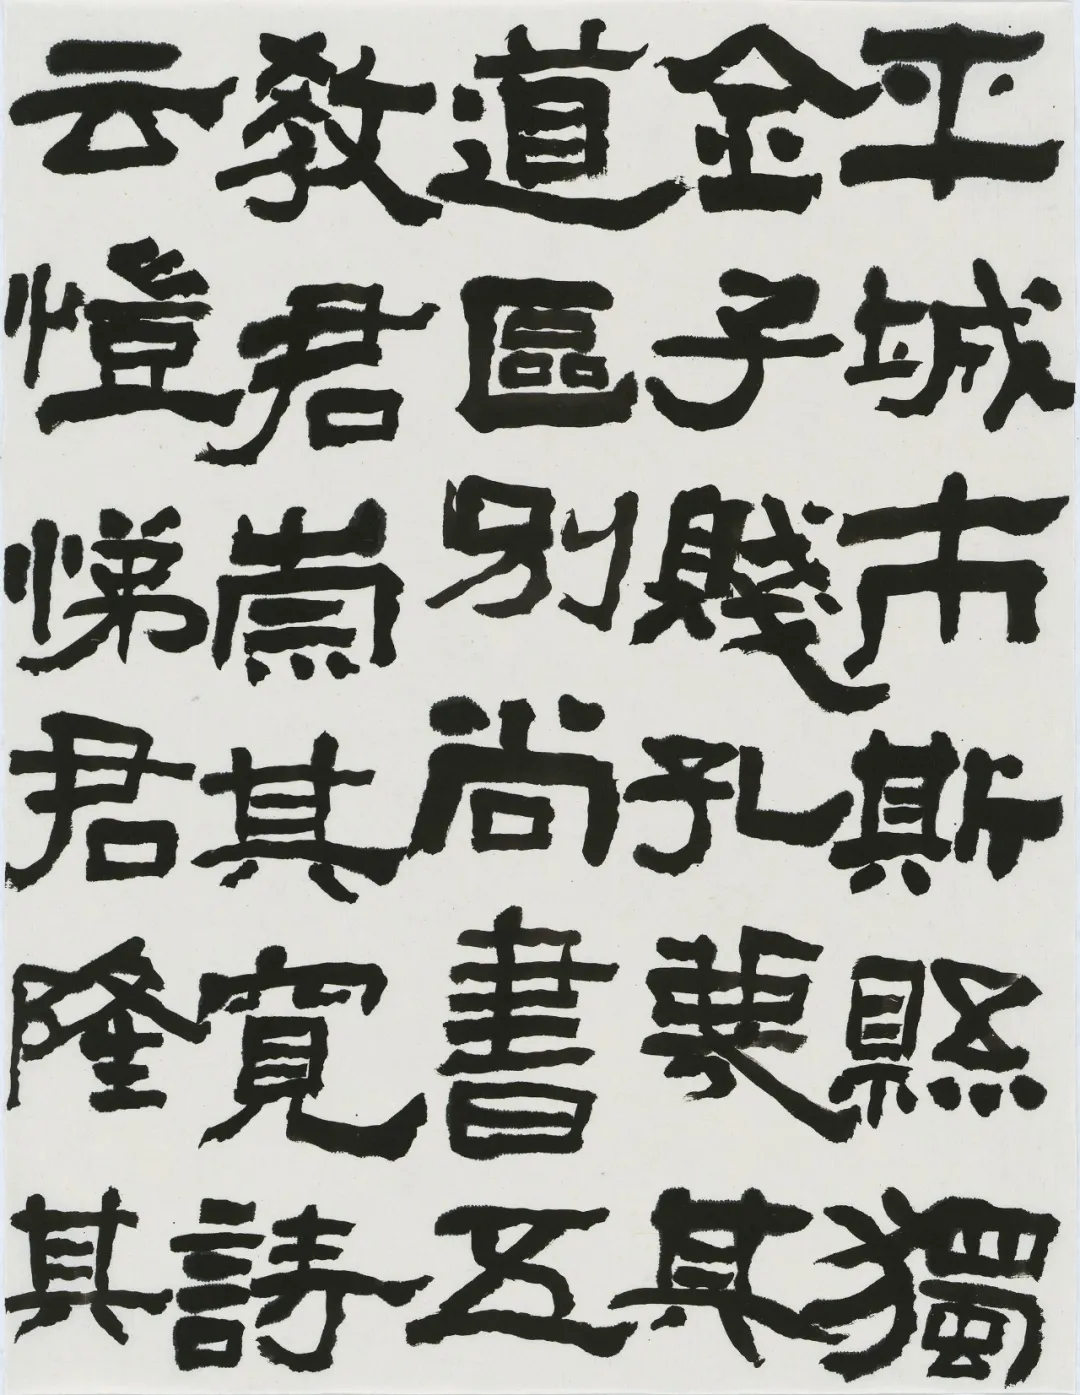 平城市斯縣獨
金子賤孔蔑其
道區別尚書五
教君崇其寬詩
云愷悌君隆其